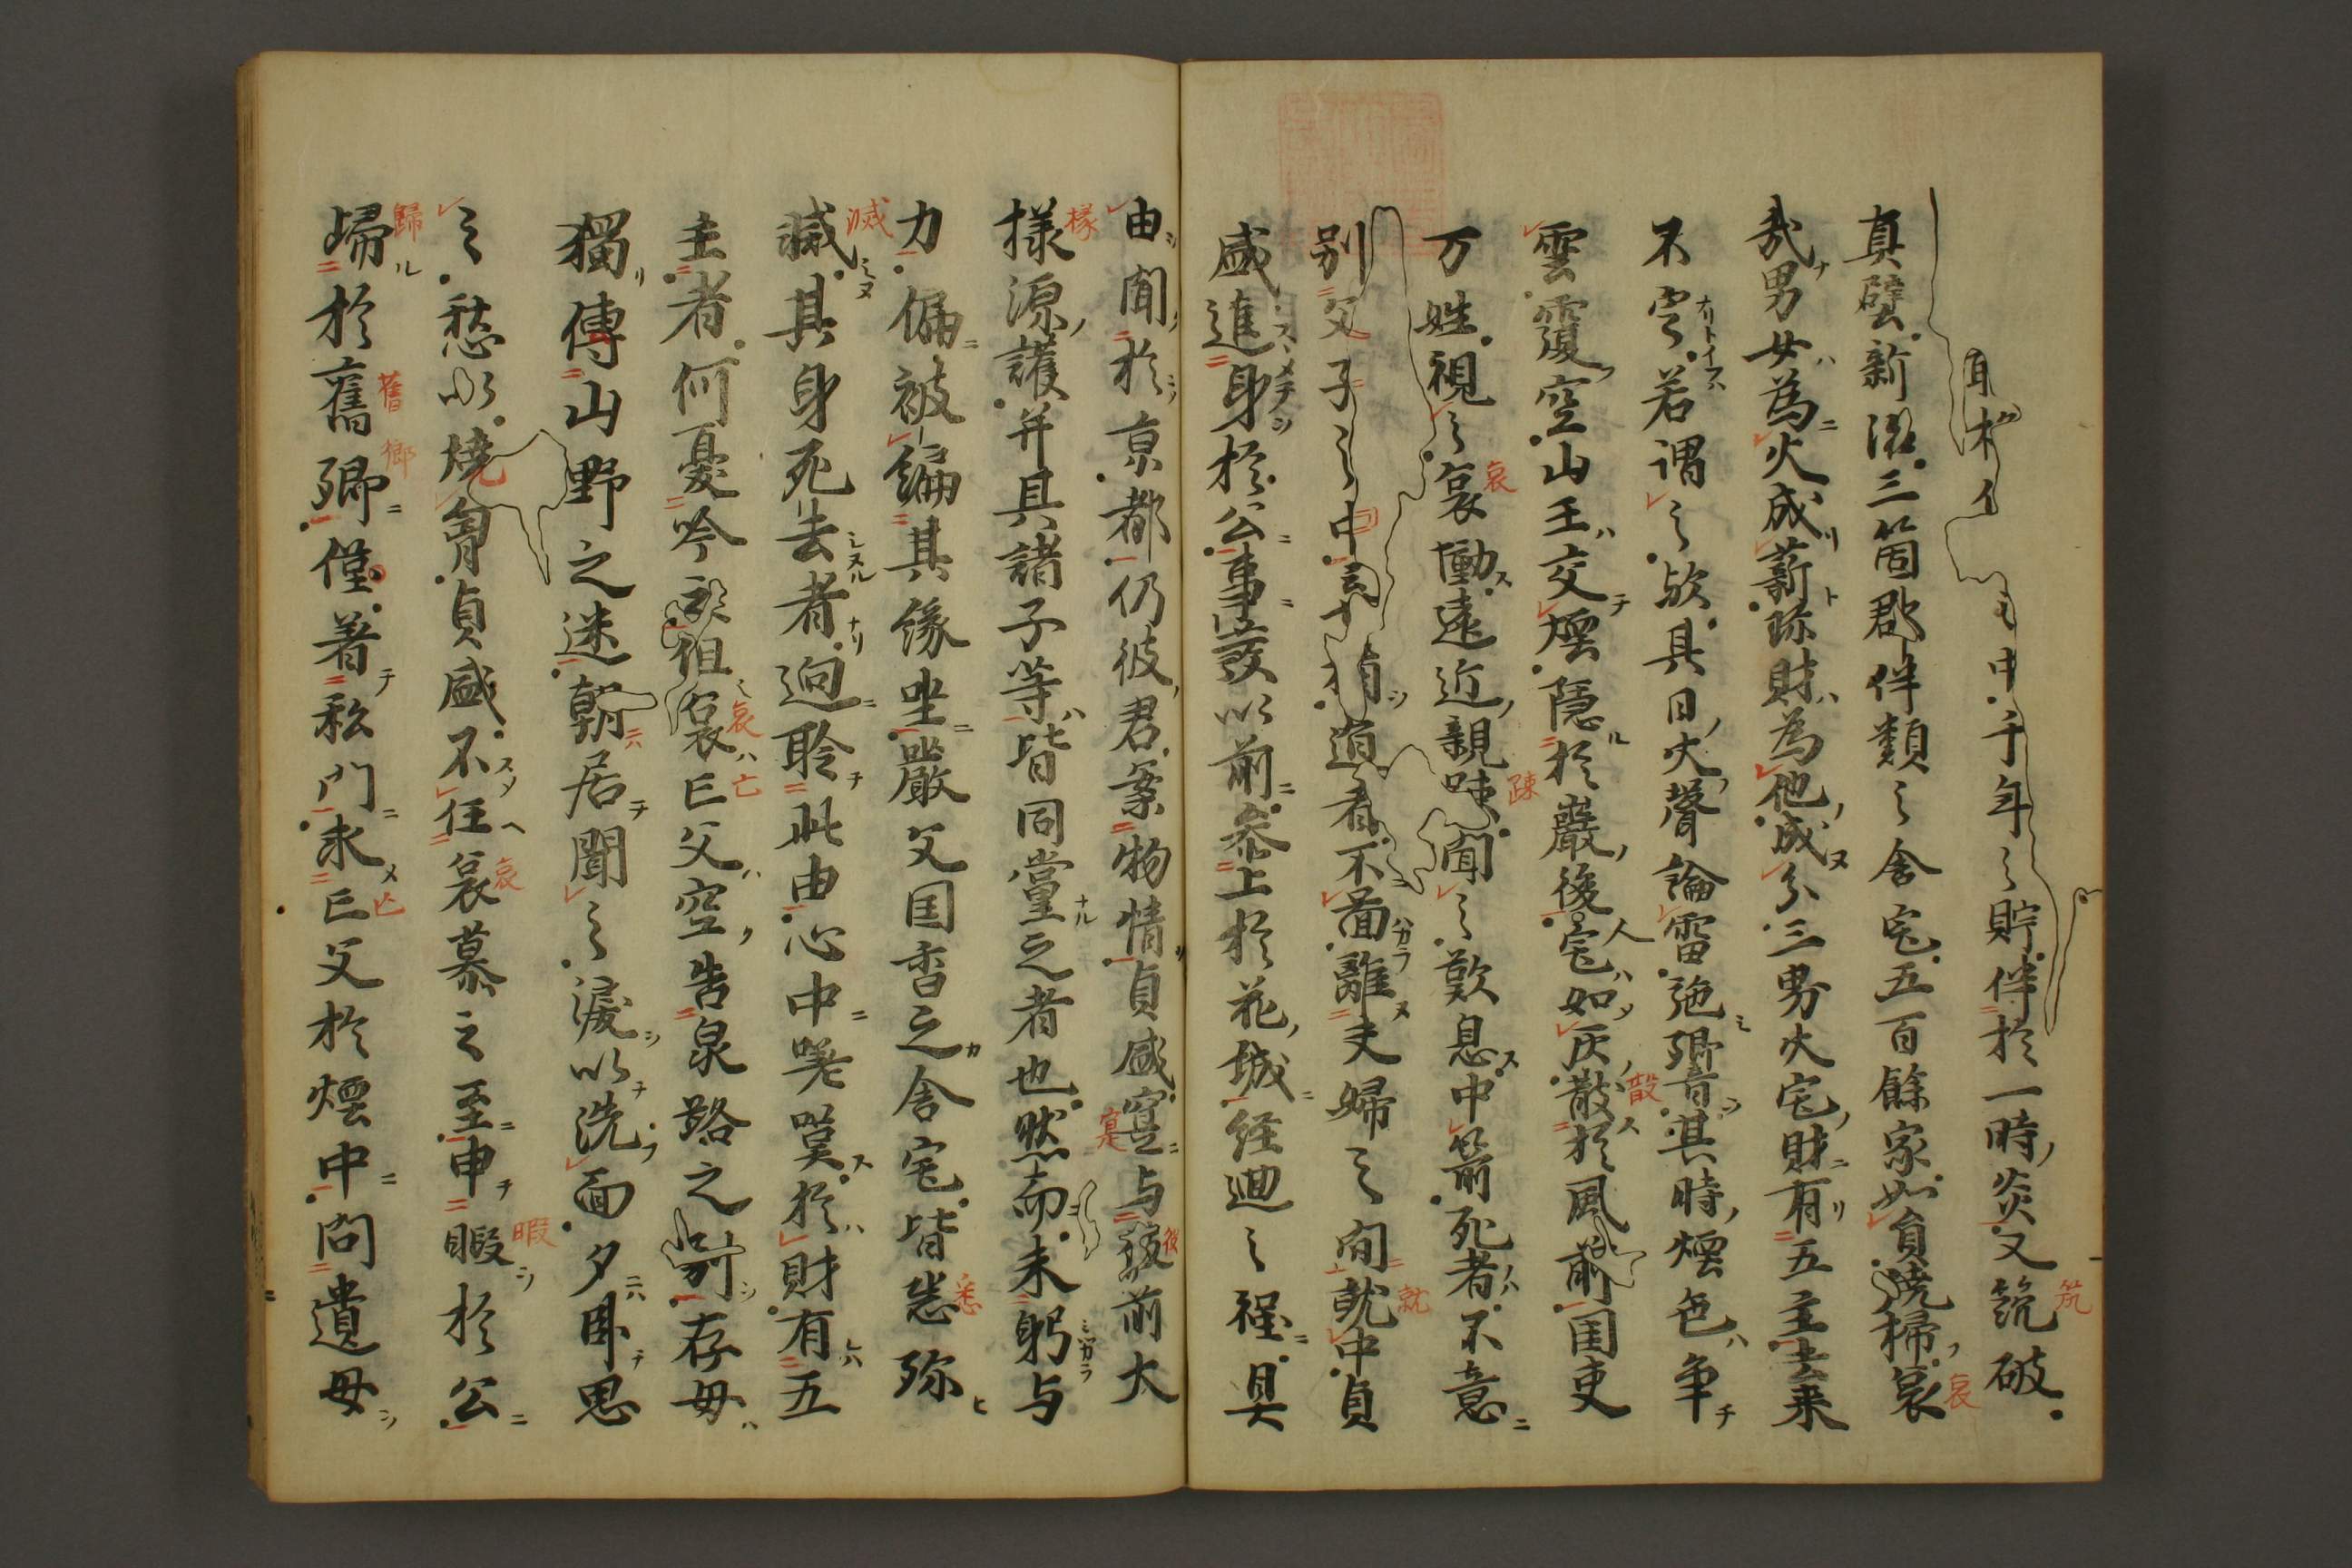 中千年之貯伴於一時炎又筑破
真壁新治三箇郡伴類之舍宅五百餘家如員燒掃哀
哉男女為火成薪珎財為他成分三界火宅財有五主去来
不定若謂之歟其日火聲論雷絶郷音其時煙色争
雲覆空山王交煙隠於巖後宅如灰散於風前国吏
万姓視之哀慟遠近親踈聞之歎息中箭死者不意
別父子之中 捐道者不啚離夫婦之間就中貞
盛進身於公事發以前叅上於花城経迴之程具
由聞於京都仍彼君案物情貞盛寔与彼前大
掾源護并其諸子等皆同黨之者也然而未躬与
力偏被編其縁坐巖父国香之舎宅皆悉殄
滅其身死去者迥聆此由心中嘆於財有五
主者何憂吟 但哀亡父空告泉路之別存母
獨傳山野之迷朝居聞之涙以洗面夕臥思
之愁以燒胸貞盛不任哀慕之至申暇於公
歸於舊郷僅着私門求亡父於煙中問遺母